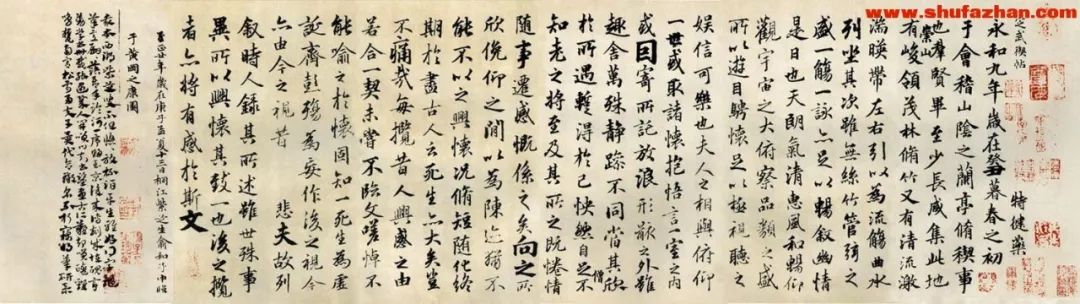 www.shufazhan.com
特健藥
永和九年歲在癸丑暮春之初
于會稽山陰之蘭亭脩稧事
也羣賢畢至少長咸集此地
有崇山峻領茂林脩竹又有清流激
湍暎帶左右引以為流觴曲水
列坐其次雖無絲竹管弦之
盛一觴一詠亦足以暢叙幽情
是日也天朗氣清惠風和暢仰
觀宇宙之大俯察品類之盛
所以遊目騁懷足以極視聽之
娛信可樂也夫人之相與俯仰
一世或取諸懷抱悟言一室之內
或因寄所託放浪形骸之外雖
趣舍萬殊静躁不同當其欣
於所遇蹔得於己怏然自足不
僧
知老之將至及其所之既惓情
隨事遷感慨係之矣向之所
欣俛仰之閒以為陳迹猶不
能不以之興懷況脩短隨化終
期於盡古人云死生亦大矣豈
不痛哉每攬昔人興感之由
若合一契未嘗不臨文嗟悼不
能喻之於懷固知一死生為虛
誕齊彭殤為妄作後之視今
亦由今之視昔 悲夫故列
叙時人錄其所述雖世殊事
異所以興懷其致一也後之攬
者亦將有感於斯文
至正廿年歲在庚子孟夏十三日桐江紫芝生俞和子中臨
于黄岡之康園